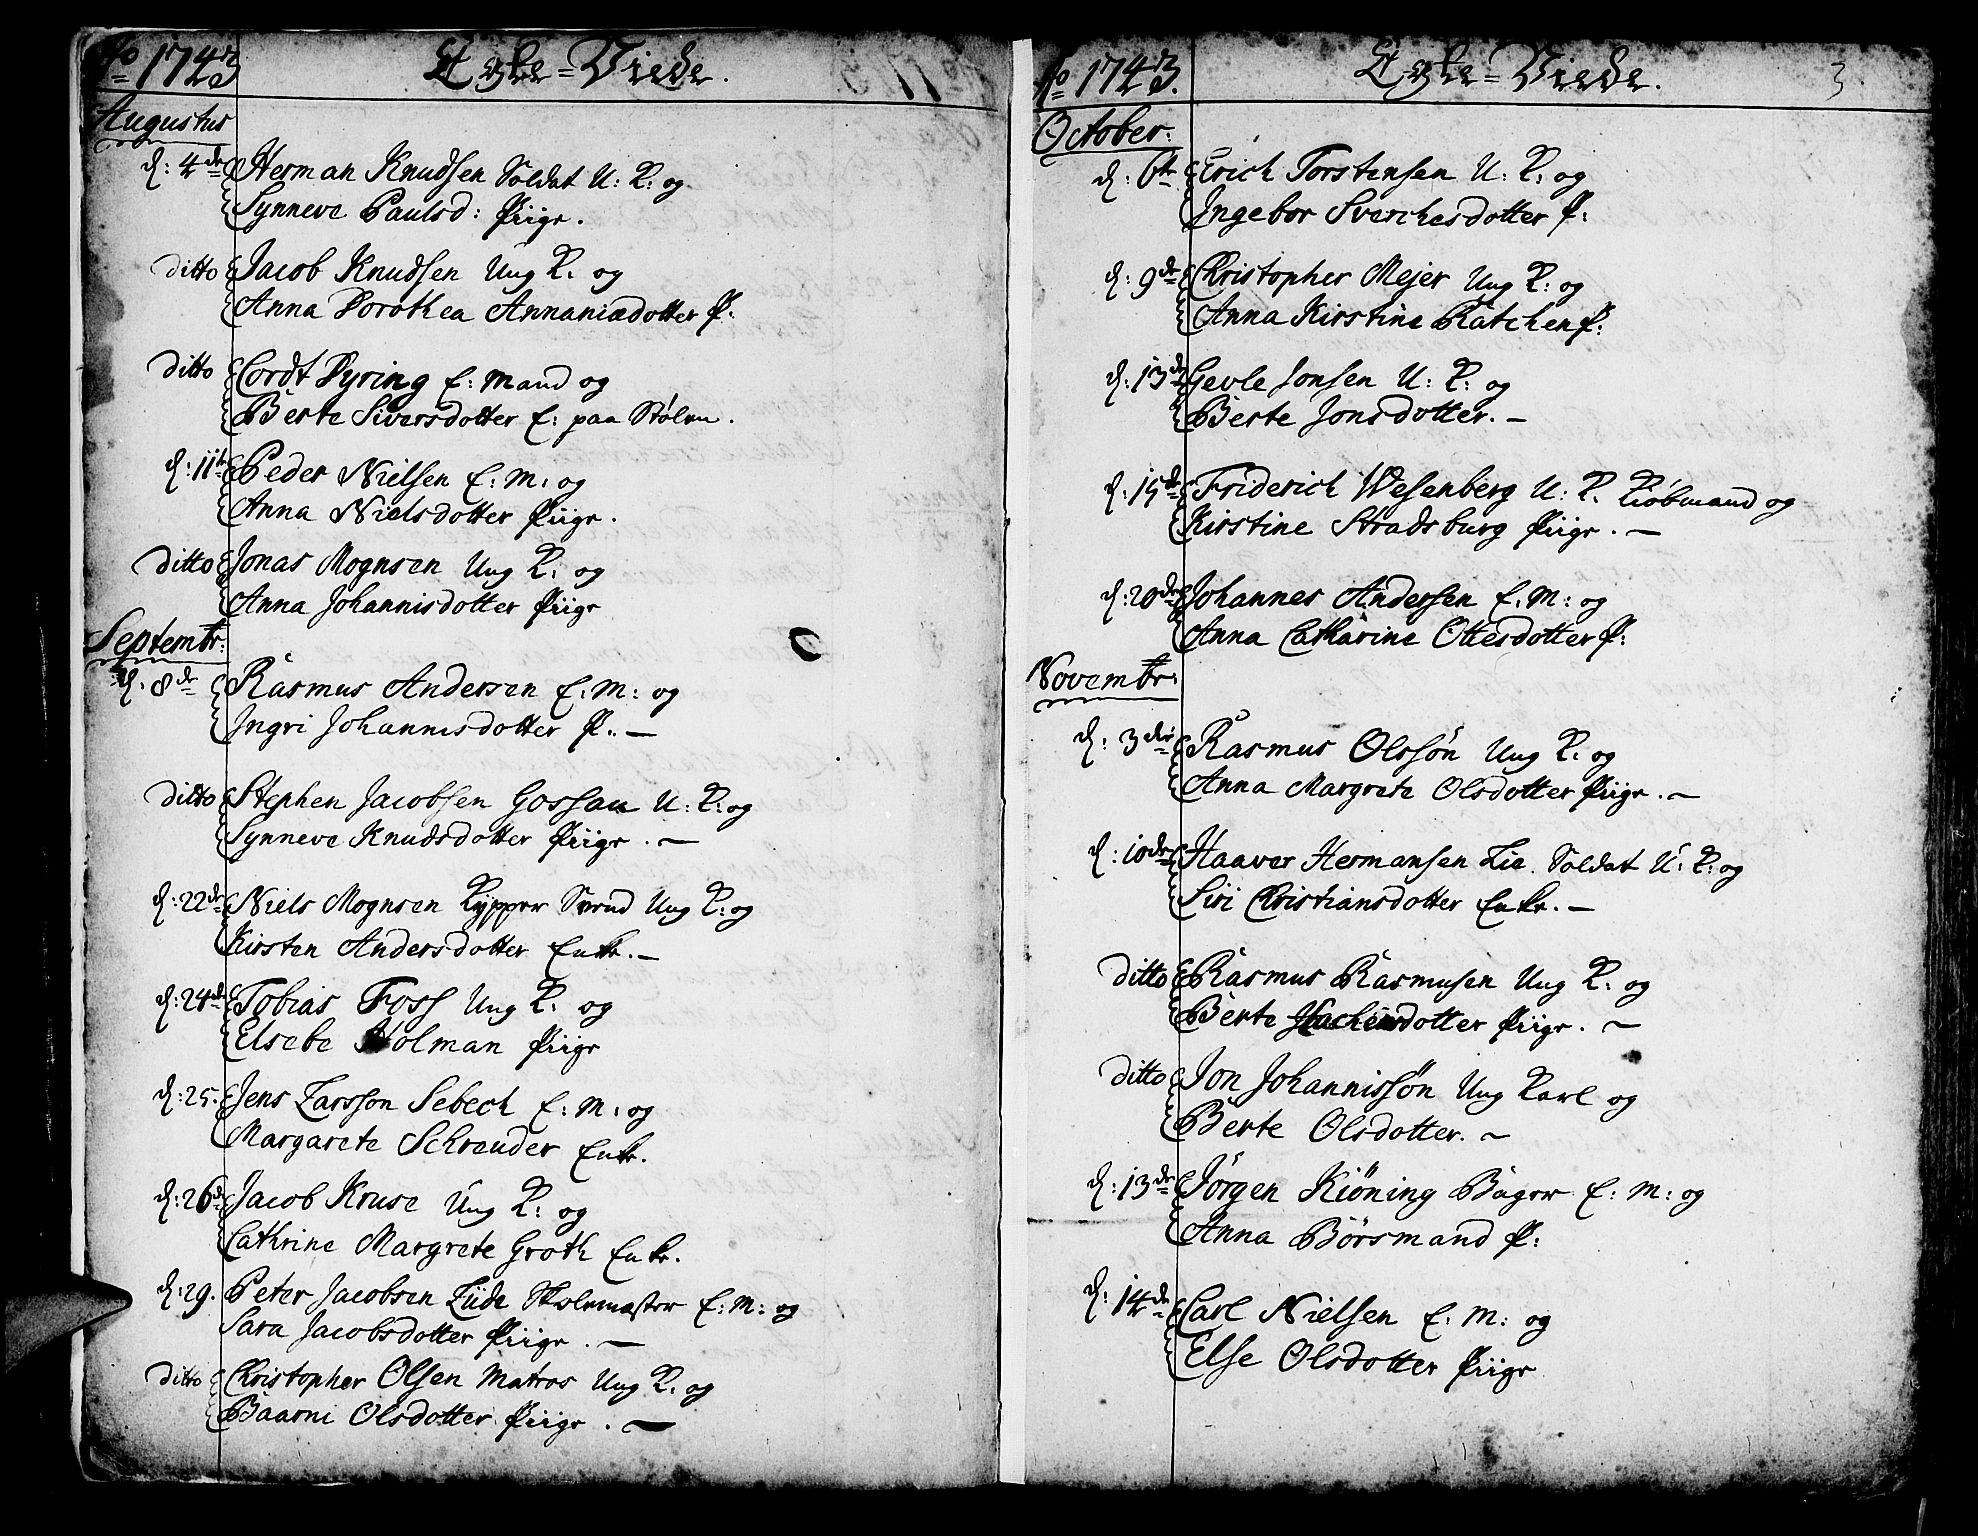 Ao 1743 Egte=Viede.
Augustus
d: 4de Herman Knudsen Soldat U: K: og
Synneve Paulsd: Piige.
ditto Jacob Knudsen Ung K. og
Anna Dorothea Annaniædotter P:
ditto Cordt Dyring E: Mand og
Berte Siversdotter E: paa Stølen.
d: 11te Peder Nielsen E: M: og
Anna Nielsdotter Piige.
ditto Jonas Mognsen Ung K: og
Anna Johannisdotter Piige
Septembr:
d. 8de Rasmus Andersen E: M: og
Ingri Johannisdotter P: —
ditto Stephen Jacobsen Gossau U: K: og
Synneve Knudsdotter Piige. —
d: 22de Niels Mognsen Kypper Svend Ung K: og
Kirsten Andersdotter Enke. —
d: 24de Tobias Foss Ung K: og
Elsebe Holman Piige
d: 25. Jens Larsson Sebech E: M: og
Margarete Schreuder Enke.
d: 26de Jacob Kruse Ung K: og
Cathrine Margrete Groth Enke.
d: 29. Peter Jacobsen Lüde Skolemæster E: M: og
Sara Jacobsdotter Piige. —
ditto Christopher Olsen Matros Ung K. og
Baarni Olsdotter Piige. —
Ao 1743. Egte=Viede. 3
October:
d: 6te Erich Torstensen U: K: og
Ingebor Sverchesdotter P:
d: 9de Christopher Mejer Ung K: og
Anna Kirstine Ratchen P:
d: 13de Gevle Jonsen U: K: og
Berte Jonsdotter. —
d: 15de Friderich Wesenberg U: K. Kiøbmand og
Kirstine Stradsburg Piige. —
d: 20de Johannes Andersen E: M: og
Anna Catharine Ottesdotter P:
Novembr:
d: 3die Rasmus Olssøn Ung K: og
Anna Margrete Olsdotter Piige. —
d: 10de Haaver Hermansen Lie. Soldat U: K: og
Siri Christiansdotter Enke. —
ditto Rasmus Rasmusen Ung K: og
Berte Hachensdotter Piige. —
ditto Jon Johannissøn Ung Karl og
Berte Olsdotter. —
d: 13de Jörgen Kiöning Bager E: M: og
Anna Börsmand P:
d: 14de Carl Nielsen E: M: og
Else Olsdotter Piige